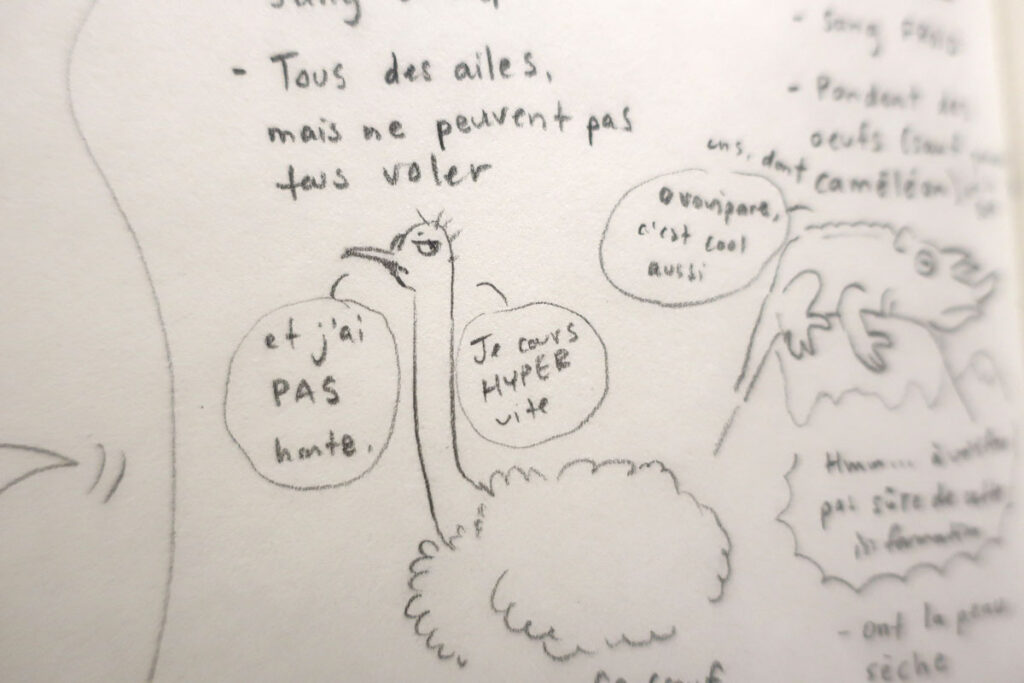 - Tous des ailes,
mais ne peuvent pas
tous voler
et j'ai
PAS
honte.
Je cours
HYPER
vite
- sang
- Pondent des
oeufs (sauf
uns, dont
caméléon)
Ovovipare,
c'est cool
aussi
Hmm... à vérifier
pas sûre de cette
information
- ont la peau
sèche